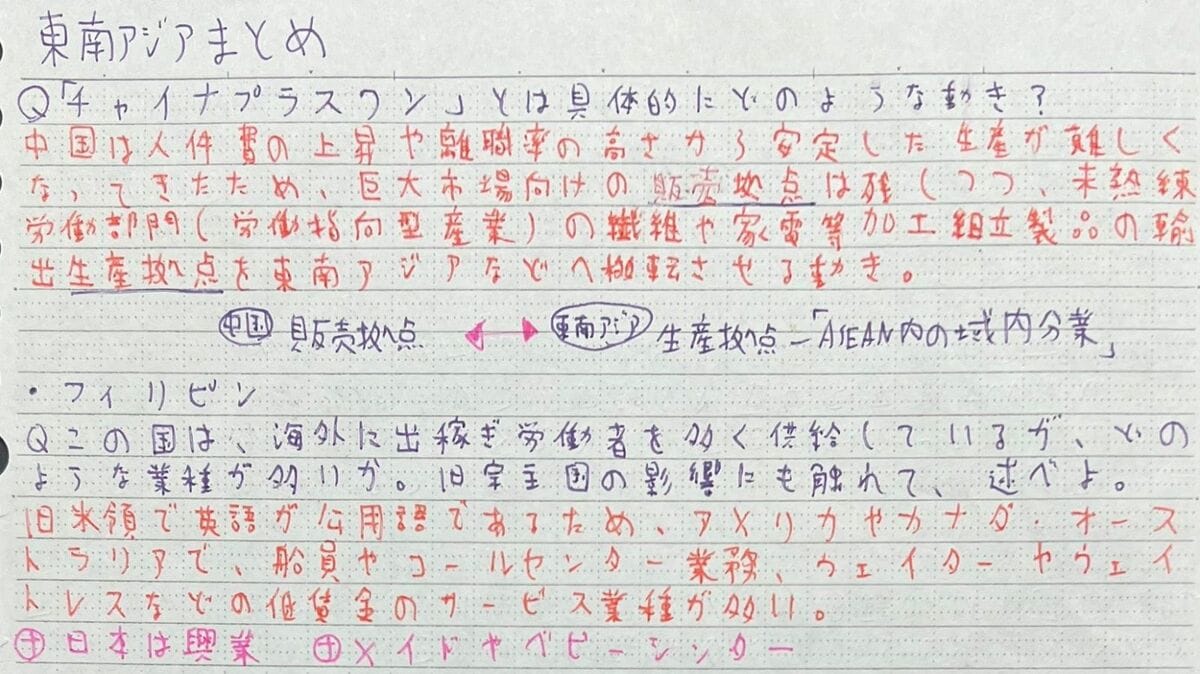 東南アジアまとめ
Q「チャイナプラスワン」とは具体的にどのような動き?
中国は人件費の上昇や離職率の高さから安定した生産が難しく
なってきたため、巨大市場向けの販売拠点は残しつつ、未熟練
労働部門(労働指向型産業)の繊維や家電等加工組立製品の輸
出生産拠点を東南アジアなどへ移転させる動き。
中国 販売拠点 ↔ 東南アジア 生産拠点-「ASEAN内の域内分業」
・フィリピン
Qこの国は、海外に出稼ぎ労働者を多く供給しているが、どの
ような業種が多いか。旧宗主国の影響にも触れて、述べよ。
旧米領で英語が公用語であるため、アメリカやカナダ・オース
トラリアで、船員やコールセンター業務、ウェイターやウェイ
トレスなどの低賃金のサービス業種が多い。
⊕日本は興業 ⊕メイドやベビーシッター